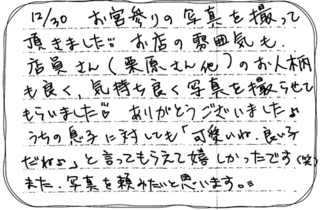 12/30 お宮参りの写真を撮って
頂きました!! お店の雰囲気も、
店員さん(栗原さん他)のお人柄
も良く、気持ち良く写真を撮らせて
もらいました!! ありがとうございました♪
うちの息子に対しても「可愛いね、良い子
だね♪」と言ってもらえて嬉しかったです(笑)
また、写真を頼みたいと思います。=